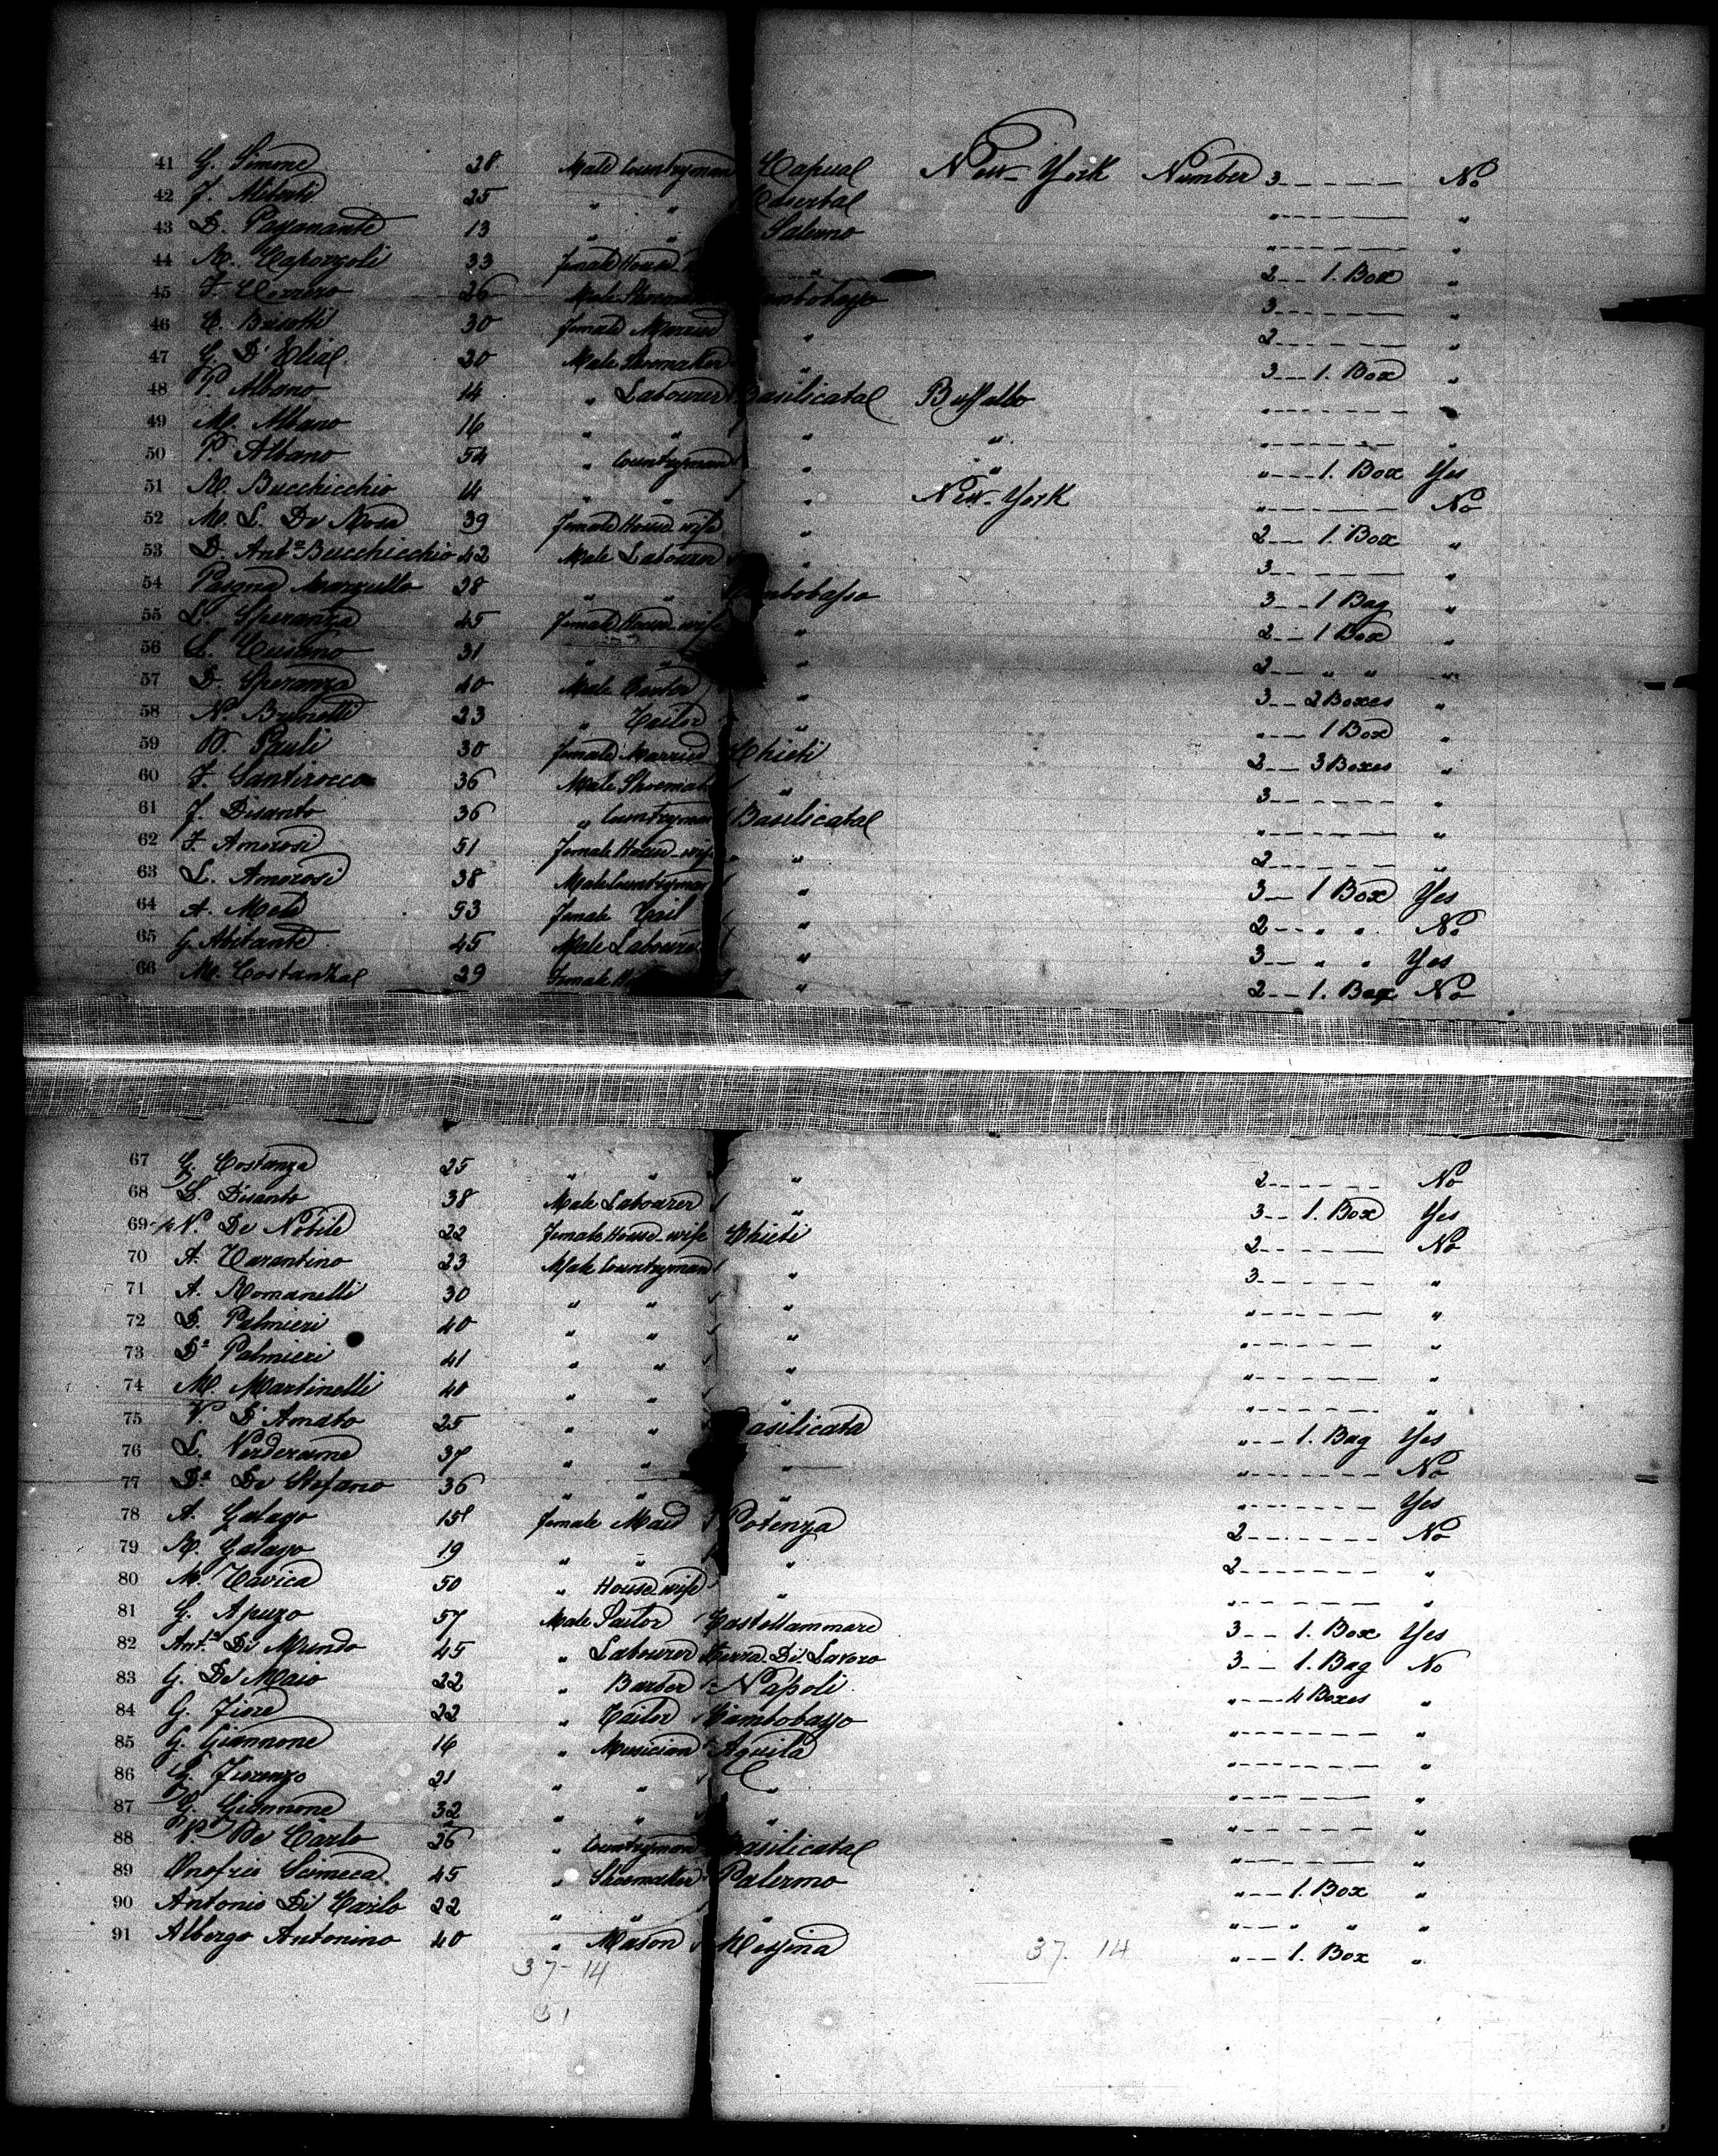 41 G. Simone 28 Male Countryman Capua New-York Number 3 No
42 F. Aliberti 25 " " Caserta " "
43 D. Passanante 13 " " Salerno " "
44 33 Female House " 2 1. Box "
45 26 Male 3 "
46 C. Brisotti 30 Female Married " 2 "
47 G. D'Elia 30 Male Shoemaker " 3 1. Box "
48 P. Albano 14 " Labourer Basilicata Buffallo " "
49 M. Albano 16 " " " " " "
50 P. Albano 54 " Countryman " " " 1. Box Yes
51 R. Bucchicchio 14 " " " New-York " No
52 M. L. De Rosa 39 Female House-wife " 2 1. Box "
53 D. Ant° Bucchicchio 42 Male Labourer " 3 "
54 Marzullo 28 " " 3 1 Bag "
55 L. Speranza 45 Female House-wife " 2 1 Box "
56 31 " " " 2 " " "
57 D. Speranza 40 Male " 3 2 Boxes "
58 N. Brunetti 23 " Tailor " " 1 Box "
59 Pauli 30 Female Married Chieti 2 3 Boxes "
60 F. Santirocco 36 Male " 3 "
61 F. Disanto 36 " Countryman Basilicata " "
62 F. Amorosi 51 Female House-wife " 2 "
63 L. Amorosi 38 Male Countryman " 3 1 Box Yes
64 A. 53 Female " 2 " " No
65 G. Abitante 45 Male Labourer " 3 " " Yes
66 M. Costanza 29 Female " 2 1. Bag No
67 G. Costanza 25 " " " 2 No
68 L. Disanto 38 Male Labourer " 3 1. Box Yes
69 N. De Nobile 22 Female House-wife Chieti 2 No
70 A. Tarantino 23 Male Countryman " 3 "
71 A. Romanelli 30 " " " " "
72 D. Palmieri 40 " " " " "
73 D° Palmieri 41 " " " " "
74 M. Martinelli 40 " " " " "
75 V. D'Amato 25 " " Basilicata " 1. Bag Yes
76 L. Verderame 37 " " " " No
77 D° De Stefano 36 " " " " Yes
78 A. 15 Female Maid Potenza 2 No
79 19 " " " 2 "
80 M. 50 " House-wife " " "
81 G. Apuzo 57 Male Castellammare 3 1. Box Yes
82 Ant° Di Mundo 45 " Labourer Terra Di Lavoro 3 1. Bag No
83 G. De Maio 22 " Barber Napoli " 4 Boxes "
84 G. Fiore 22 " Tailor Cambobasso " "
85 G. Giannone 16 " Musician Aquila " "
86 G. Fiorenzo 21 " " " " "
87 G. Giannone 32 " " " " "
88 V. De Carlo 26 " Countryman Basilicata " "
89 Onofrio Scimeca 45 " Shoemaker Palermo " 1. Box "
90 Antonio Di Carlo 22 " " " " " " "
91 Albergo Antonino 40 " Mason Messina " 1. Box "
37-14 37. 14
51